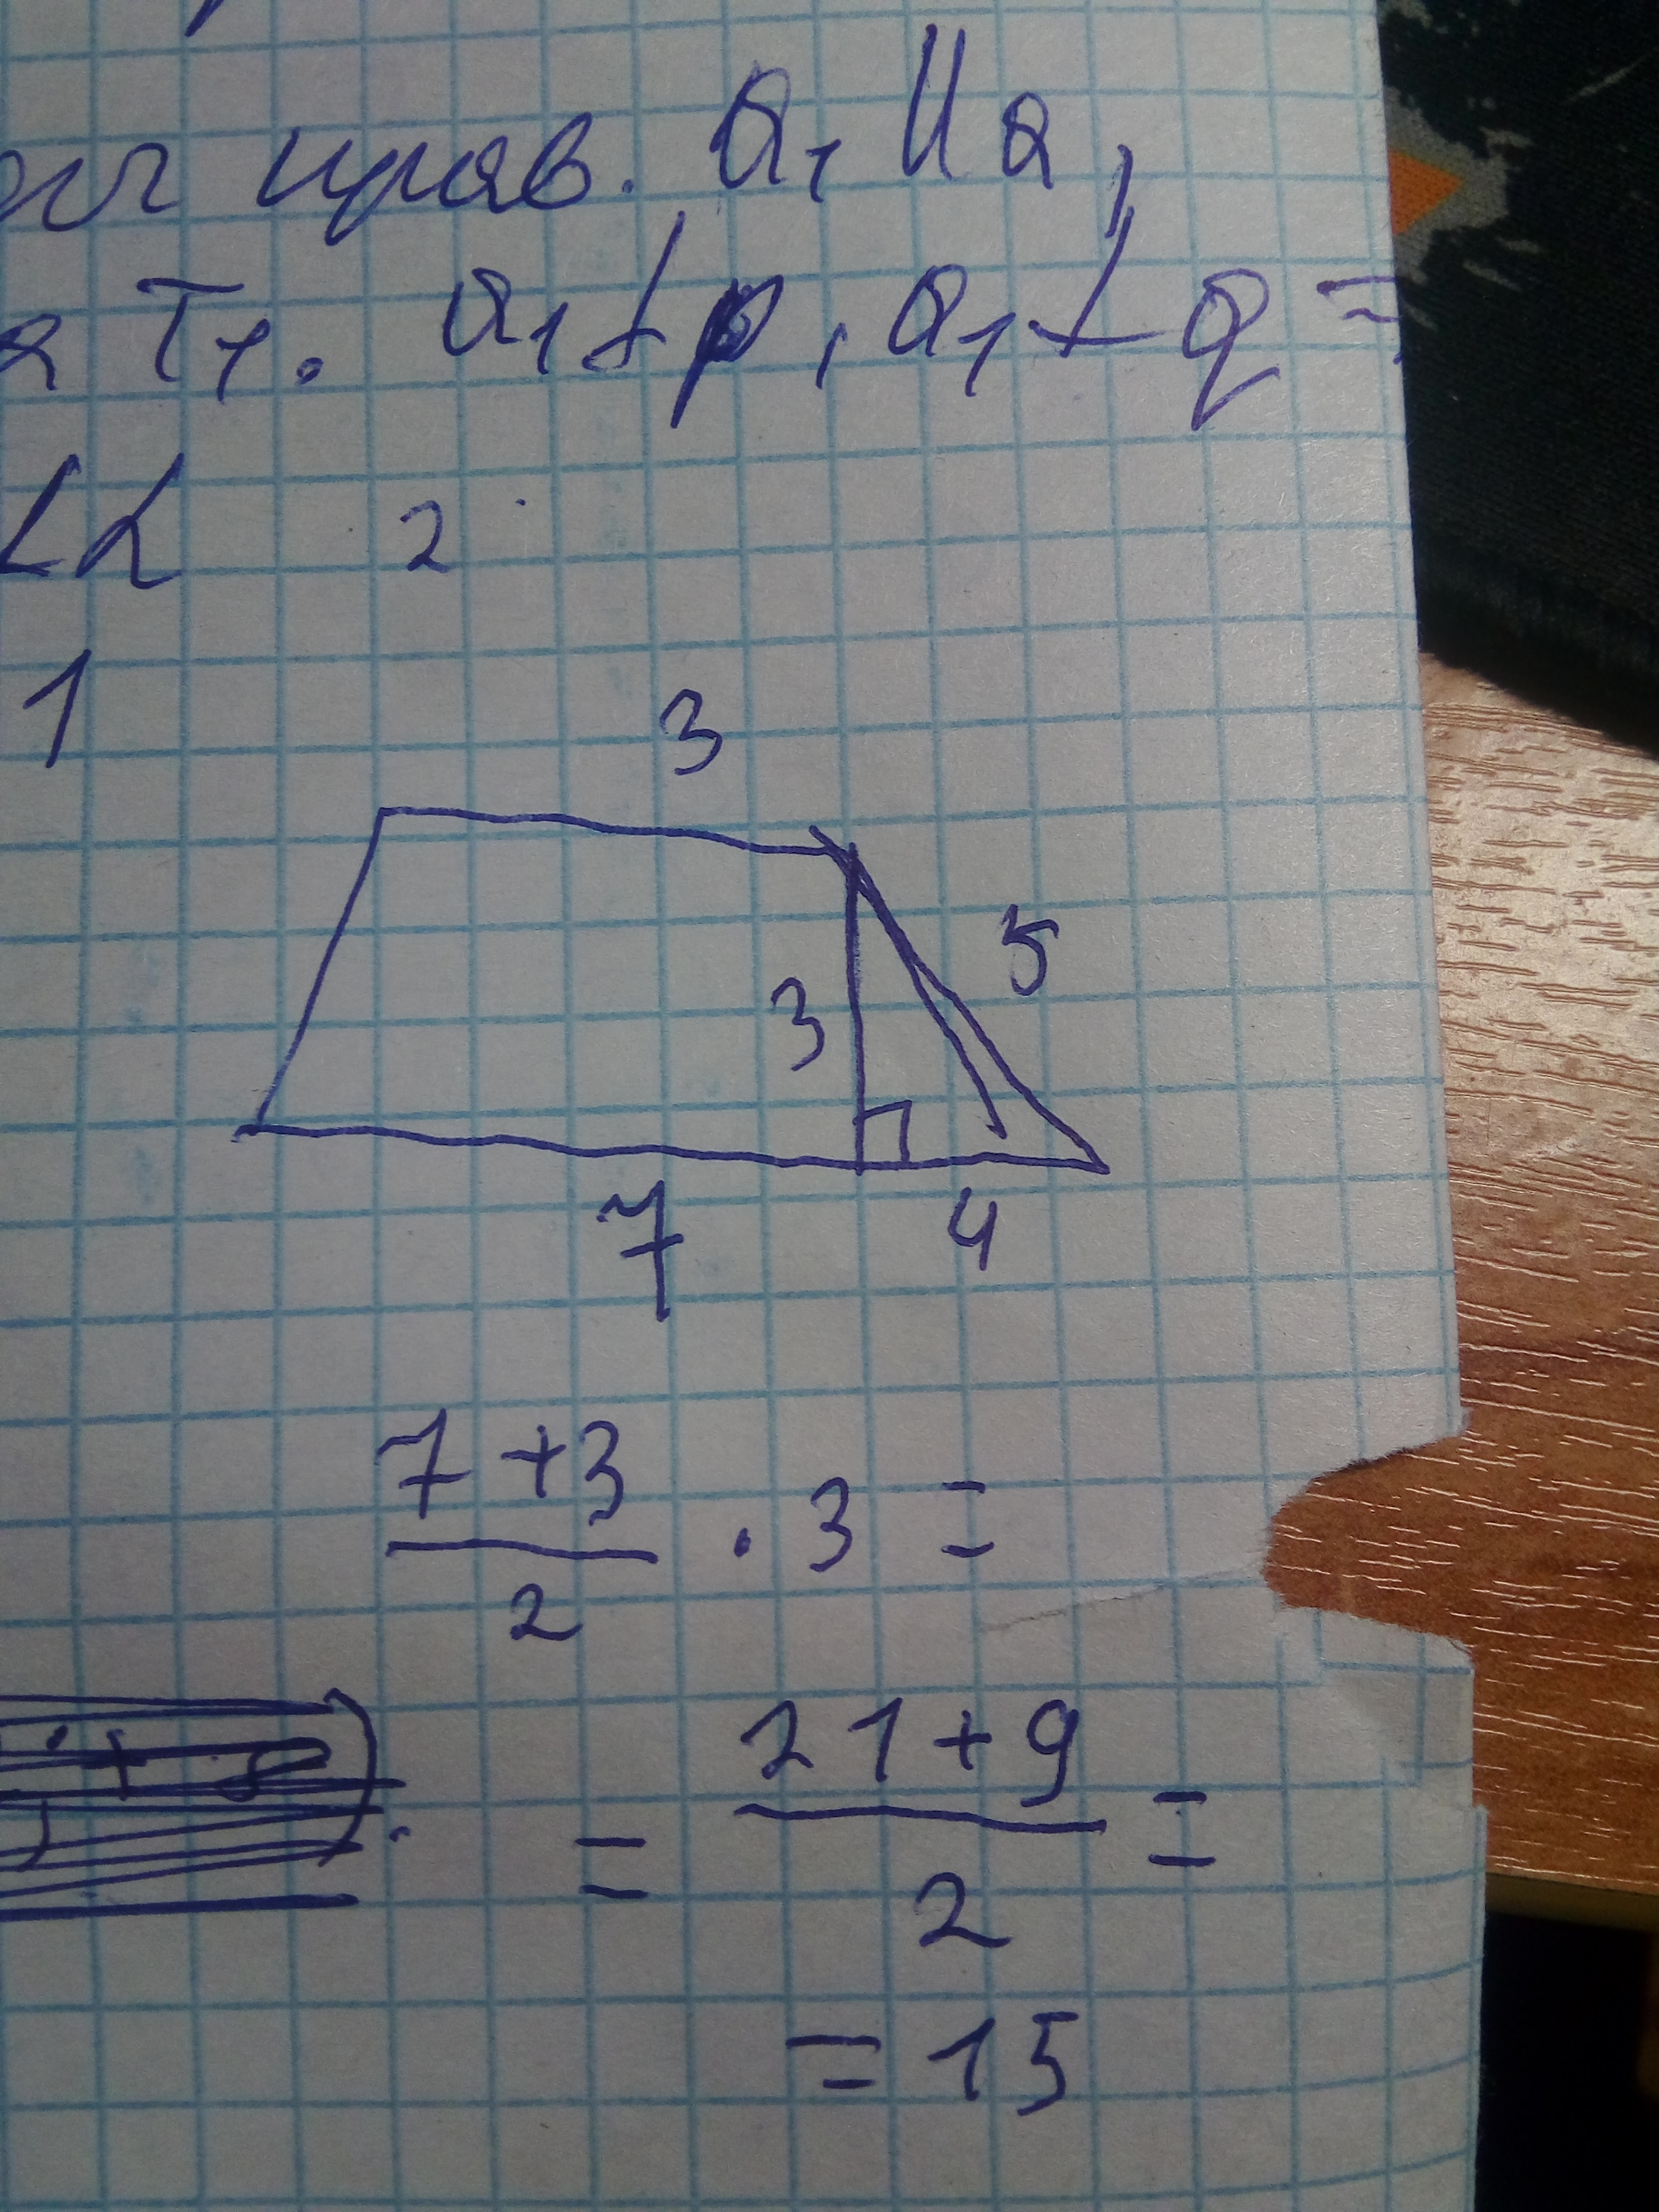 прав. a₁ || a,
T₁. a₁ ⊥ p, a₁ ⊥ q =
⊥ α 2
1
3
5
3
7 4
7 + 3
/ 2 · 3 =
= 21 + 9 / 2 =
= 15